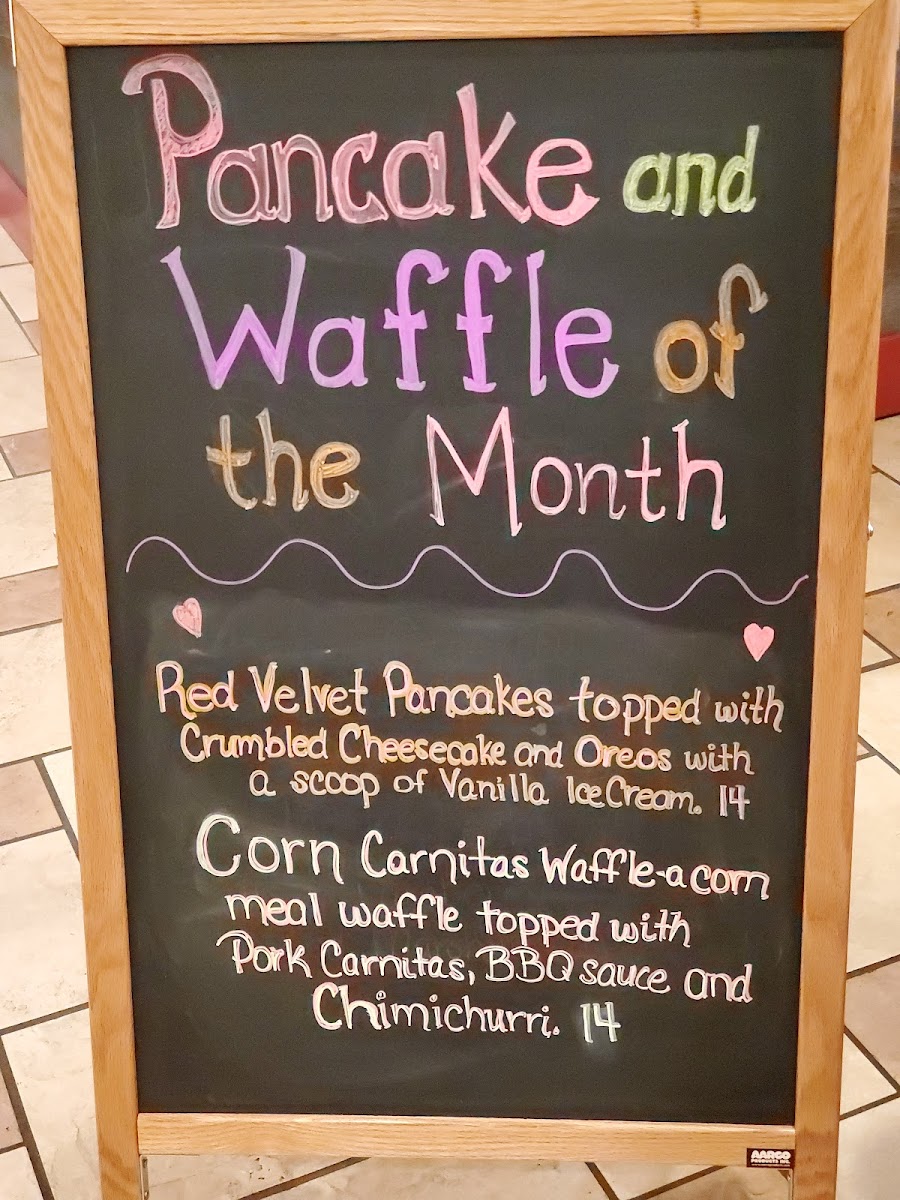 Pancake and
Waffle of
the Month
Red Velvet Pancakes topped with
Crumbled Cheesecake and Oreos with
a scoop of Vanilla Ice Cream. 14
Corn Carnitas Waffle-a corn
meal waffle topped with
Pork Carnitas, BBQ sauce and
Chimichurri. 14
AARCO
PRODUCTS INC.